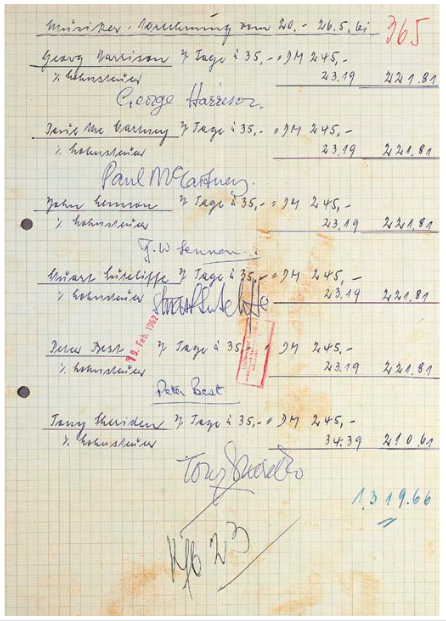 Musiker-Abrechnung vom 20.-26.5. bis
365
Georg Harrison 7 Tage à 35,- DM 245,-
% Lohnsteuer 23.19 221.81
George Harrison.
Paul Mc Cartney 7 Tage à 35,- DM 245,-
% Lohnsteuer 23.19 221,81
Paul McCartney.
John Lennon 7 Tage à 35,- DM 245,-
% Lohnsteuer 23,19 221,81
J. W Lennon.
Stuart Sutcliffe 7 Tage à 35,- DM 245,-
% Lohnsteuer 23.19 221,81
Stuart Sutcliffe
19. Feb. 1962
Peter Best 7 Tage à 35,- DM 245.-
% Lohnsteuer 23.19 221.81
Peter Best
Tony Sheridan 7 Tage à 35,- DM 245,-
% Lohnsteuer 34.39 210.61
Tony Sheridan
1.319.66
Kfb 23